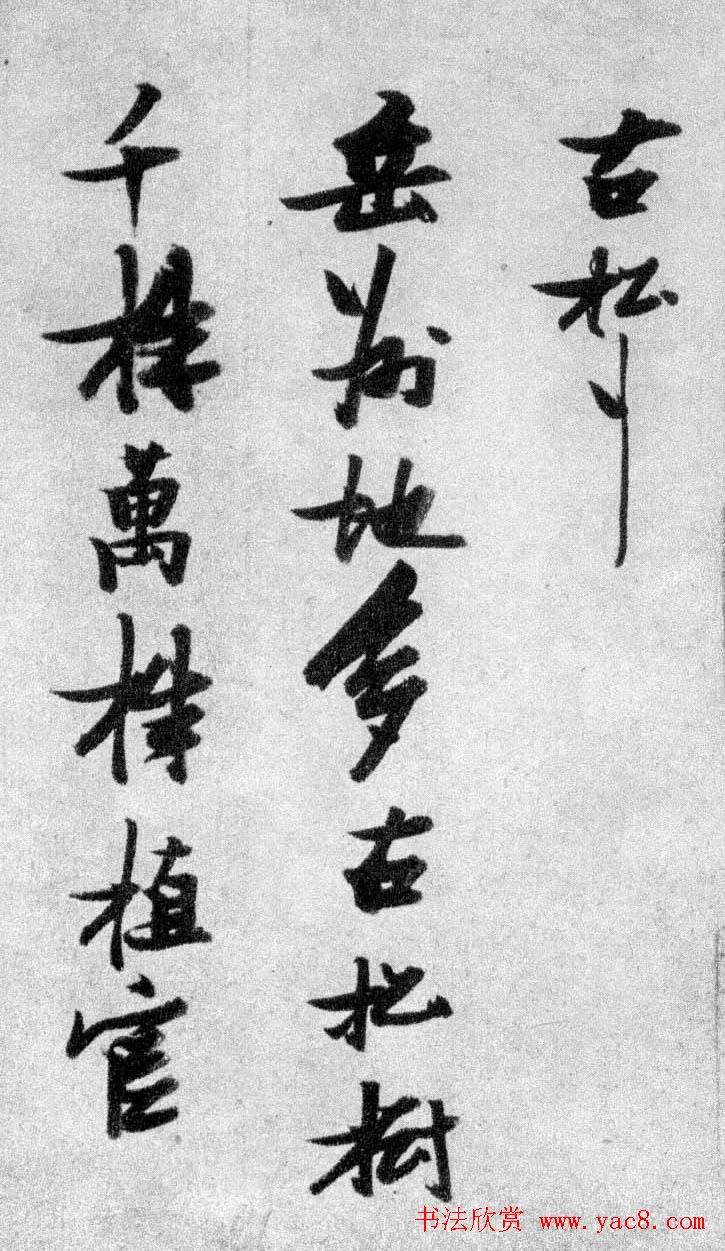 古松行
岳州地多古松樹
千株萬株植官
书法欣赏 www.yac8.com